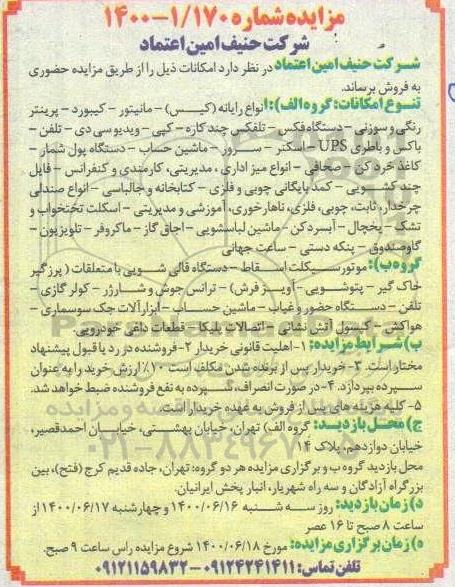 مزایده شماره ۱/۱۷۰-۱۴۰۰
شرکت حنیف امین اعتماد
شرکت حنیف امین اعتماد در نظر دارد امکانات ذیل را از طریق مزایده حضوری
به فروش برساند.
تنوع امکانات: گروه الف): انواع رایانه (کیس) - مانیتور - کیبورد - پرینتر
رنگی و سوزنی - دستگاه فکس - تلفکس چند کاره - کپی - ویدیو سی دی - تلفن -
باکس و باطری UPS - اسکنر - سرور - ماشین حساب - دستگاه پول شمار -
کاغذ خرد کن - صحافی - انواع میز اداری، مدیریتی، کارمندی و کنفرانس - فایل
چند کشویی - کمد بایگانی چوبی و فلزی - کتابخانه و جالباسی - انواع صندلی
چرخدار، ثابت، چوبی، فلزی، ناهارخوری، آموزشی و مدیریتی - اسکلت تختخواب و
تشک - یخچال - آبسردکن - ماشین لباسشویی - اجاق گاز - ماکروفر - تلویزیون -
گاوصندوق - پنکه دستی - ساعت جهانی
گروه ب): موتورسیکلت اسقاط - دستگاه قالی شویی با متعلقات (پرزگیر
خاک گیر - پتوشویی - آویز فرش) - ترانس جوش و شارژر - کولر گازی -
تلفن - دستگاه حضور و غیاب - ماشین حساب - ابزارآلات جک سوسماری -
هواکش - کپسول آتش نشانی - اتصالات پلیکا - قطعات داغی خودرویی.
ب) شرایط مزایده: ۱- اهلیت قانونی خریدار ۲- فروشنده در رد یا قبول پیشنهاد
مختار است. ۳- خریدار پس از برنده شدن مکلف است ۱۰٪ ارزش خرید را به عنوان
سپرده بپردازد. ۴- در صورت انصراف، سپرده به نفع فروشنده ضبط خواهد شد.
۵- کلیه هزینه های پس از فروش به عهده خریدار است.
ج) محل بازدید: گروه الف) تهران، خیابان بهشتی، خیابان احمدقصیر،
خیابان دوازدهم، پلاک ۱۴
محل بازدید گروه ب و برگزاری مزایده هر دو گروه: تهران، جاده قدیم کرج (فتح)، بین
بزرگراه آزادگان و سه راه شهریار، انبار پخش ایرانیان.
د) زمان بازدید: روز سه شنبه ۱۴۰۰/۰۶/۱۶ و چهارشنبه ۱۴۰۰/۰۶/۱۷ از
ساعت ۸ صبح تا ۱۶ عصر
ه) زمان برگزاری مزایده: مورخ ۱۴۰۰/۰۶/۱۸ شروع مزایده راس ساعت ۹ صبح.
تلفن تماس: ۰۹۱۲۴۲۴۱۴۱۱-۰۹۱۲۱۱۵۹۸۳۲